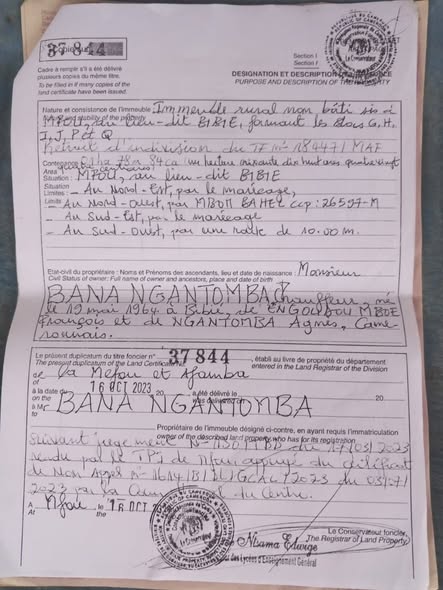 37844
Cadre à remplir s'il a été délivré
plusieurs copies du même titre.
To be filled in if many copies of the
land certificate have been issued.
Section I
Section I
DÉSIGNATION ET DESCRIPTION DE L'IMMEUBLE
PURPOSE AND DESCRIPTION OF THE PROPERTY
Nature et consistance de l'immeuble Immeuble rural non bâti sis à
MFOU, au lieu-dit BIBIE, formant les blocs G, H,
I, J, P et Q
Retrait d'indivision du TF n° 18447/MAF
Contenance 01ha 78a 84ca
Area
Situation : MFOU, au lieu-dit BIBIE
Situation
Limites : - Au Nord-Est, par le marécage,
Limits - Au Nord-Ouest, par MBOM ccp: 26597-M
- Au Sud-Est, par le marécage
- Au Sud-Ouest, par une route de 10.00 m.
Etat-civil du propriétaire : Noms et Prénoms des ascendants, lieu et date de naissance : Monsieur
Civil Status of owner: Full name of owner and ancestors, place and date of birth
BANA NGANTOMBA, Chauffeur, né
le 19 mai 1964 à
François et de NGANTOMBA Agnès, Came-
rounais.
Le présent duplicatum du titre foncier n° 37844, établi au livre de propriété du département
The present duplicatum of the Land Certificate n° entered in the Land Registrar of the Division
de La Mefou et Afamba
of
à la date du 16 OCT 2023 20 a été délivré le 20
on the was delivered on
à Mr BANA NGANTOMBA
to
Propriétaire de l'immeuble désigné ci-contre, en ayant requis l'immatriculation
owner of the described land property who has for its registration
Suivant jugement du 17/03/2023
rendu par le TPI de Mfou du certificat
de Non Appel 2023 du 03/07/
2023 par la du Centre.
A Mfou, le 16 OCT
At the
Le Conservateur foncier,
The Registrar of Land Property
Edwige
des Lycées d'Enseignement Général